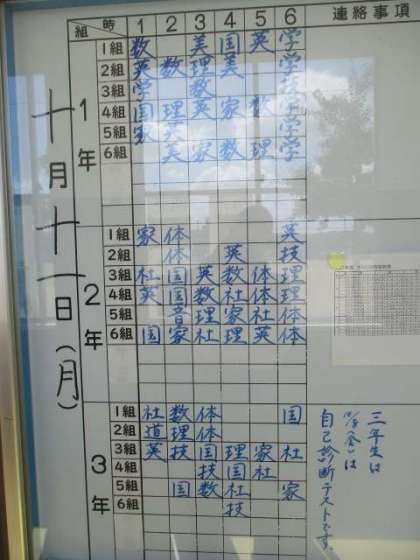 組 時 1 2 3 4 5 6 連絡事項
十月十一日(月)
1年
1組 数 美 国 英 学
2組 英 数 理 美 学
3組 学 数
4組 国 理 英 家 数 学
5組 家 学
6組 美 家 数 理 学
2年
1組 家 体 英
2組 体 英 技
3組 社 国 英 数 体 理
4組 英 国 数 社 体 理
5組 音 理 家 社 体
6組 国 家 社 理 英 体
3年
1組 社 数 体 国
2組 道 理 体
3組 英 技 国 理 家 社
4組 技 国 社
5組 国 数 社 家
6組 技
三年生は
10/8(金)は
自己診断テストです。